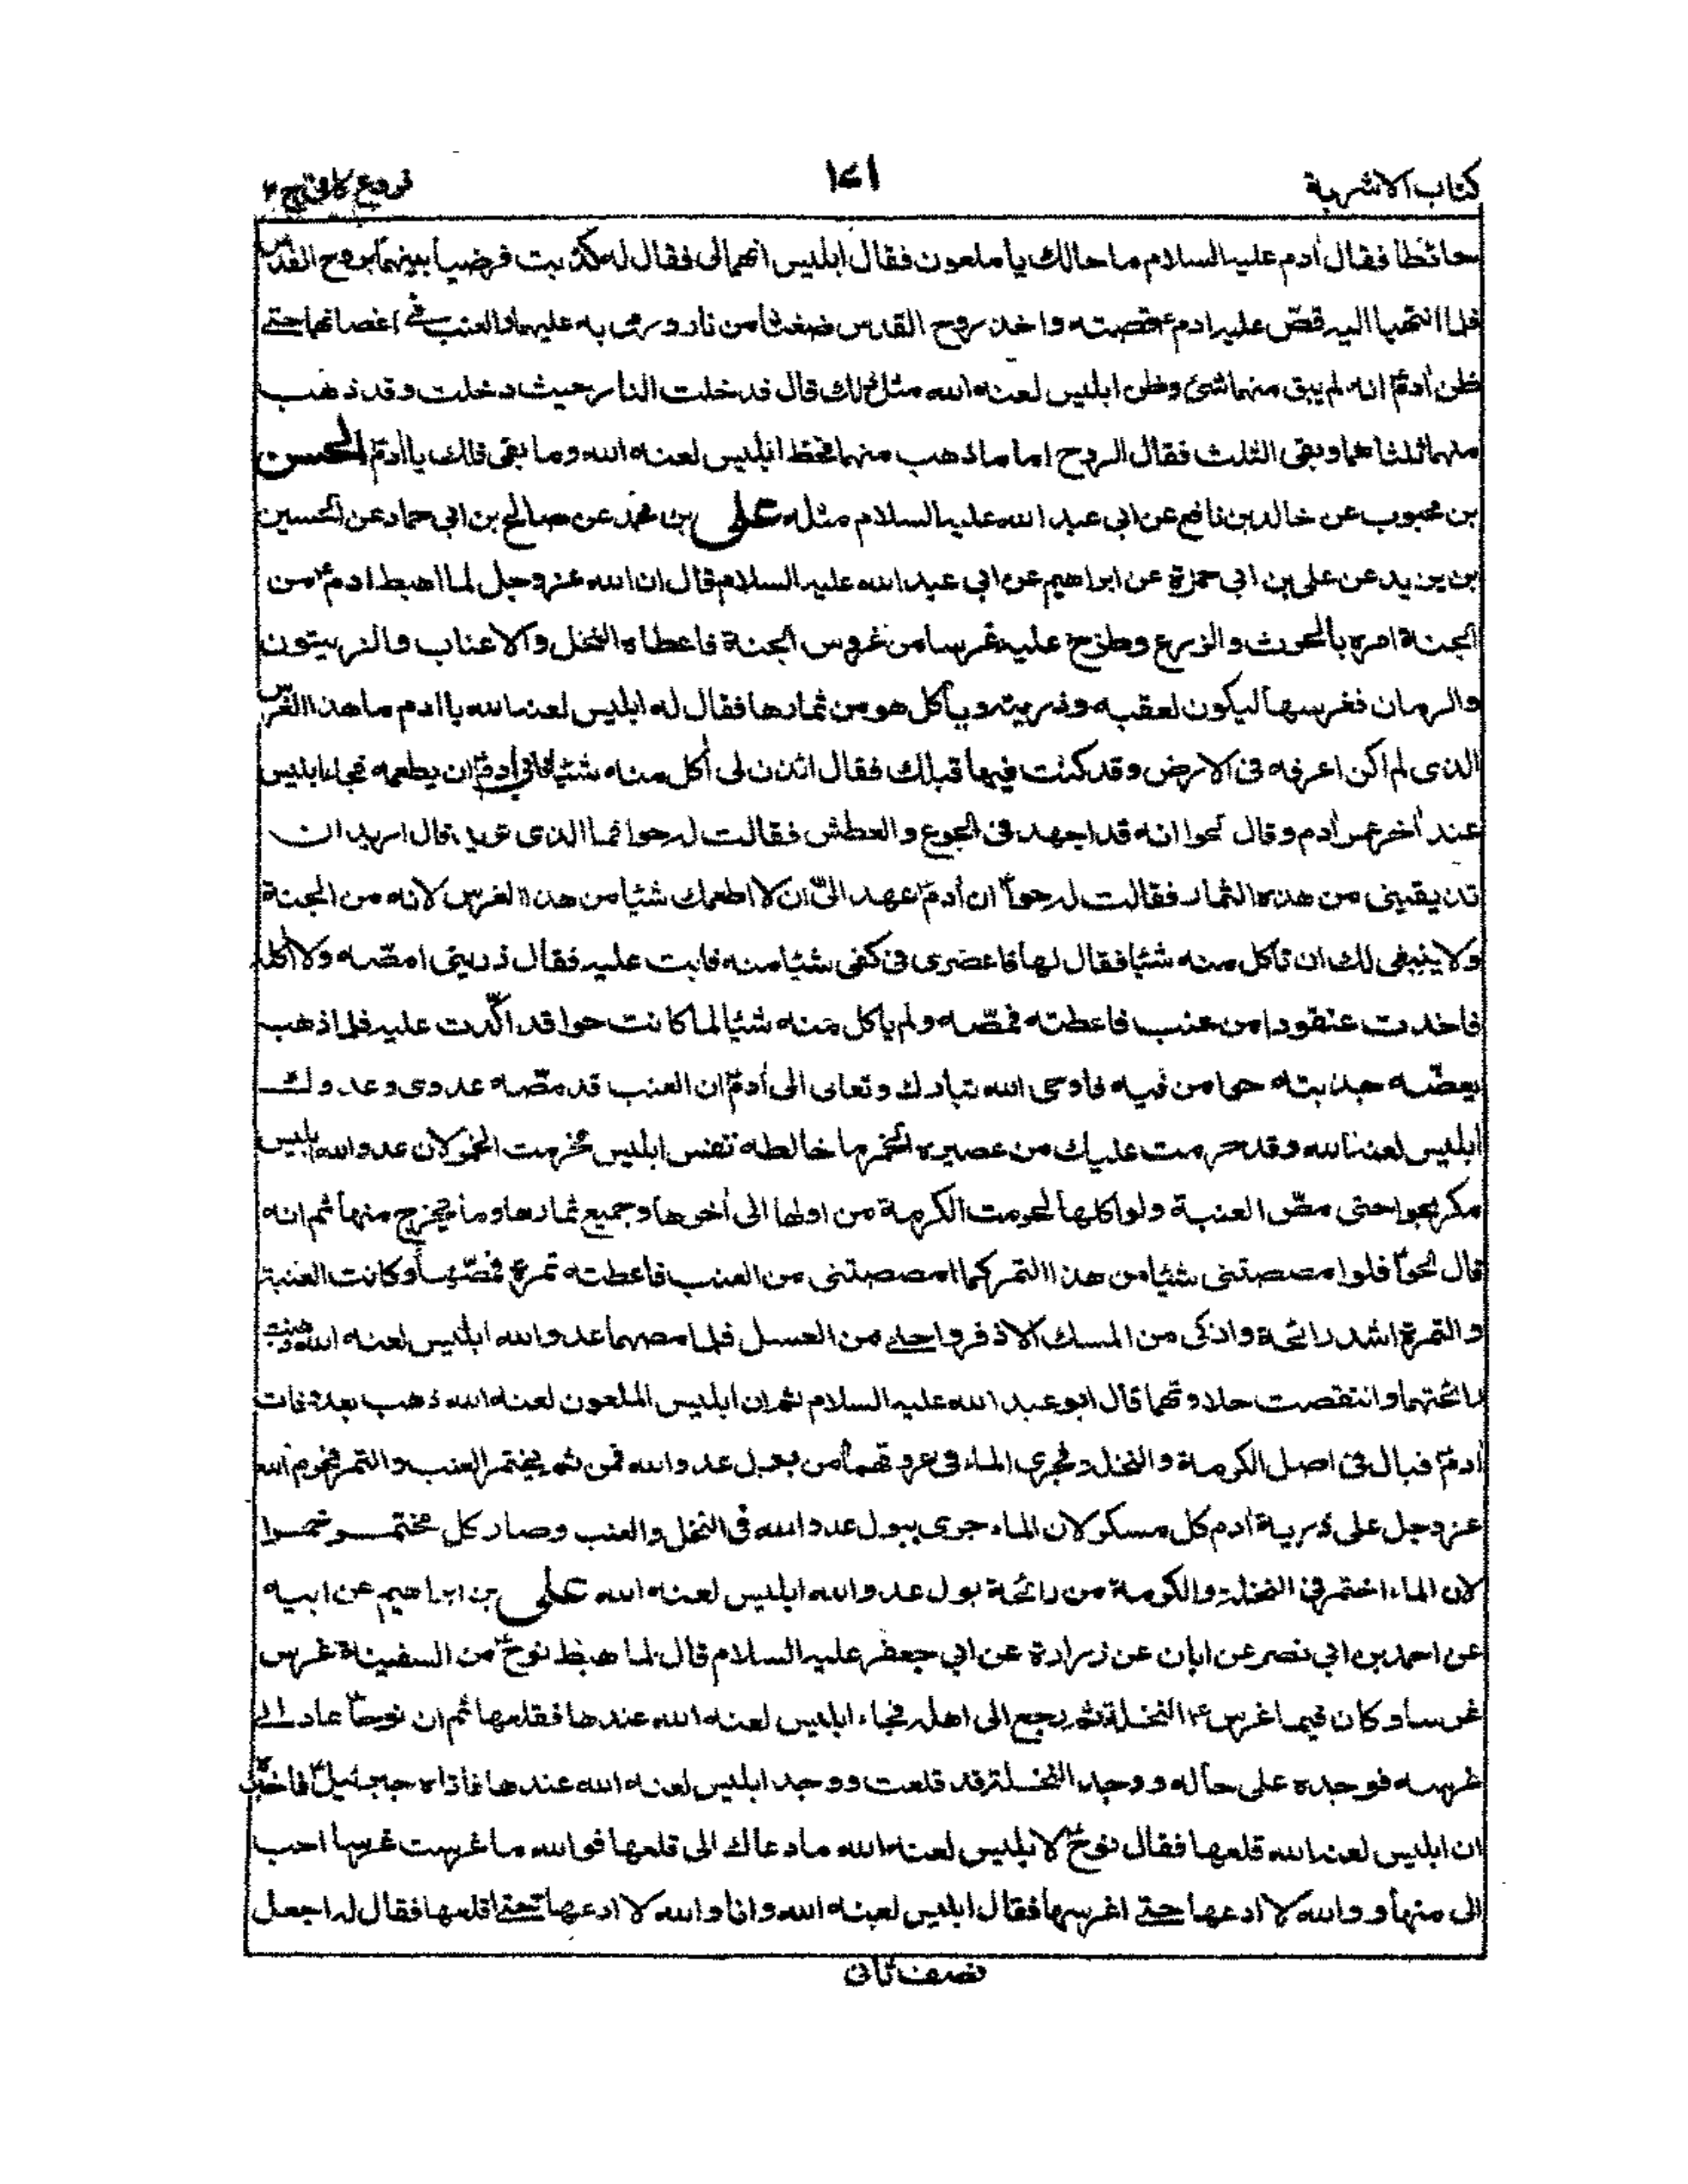 كتاب الاشربة
١٧١
فروع كافي ج ٢
حائطا فقال أدم عليه السلام ما حالك يا ملعون فقال ابليس انهما لى فقال له كذبت فرضيا بينهما بروح القدس
فلما انتهيا اليه قصّ عليه ادمؑ قصته واخذ روح القدس ضغثا من نار ورمى به عليهما والعنب في اغصانهما حتى
ظن أدمؑ انه لم يبق منهما شئ وظن ابليس لعنه الله مثل ذلك قال فدخلت النار حيث دخلت وقد ذهب
منهما ثلثاهما وبقى الثلث فقال الروح اما ما ذهب منهما فحظ ابليس لعنه الله وما بقى فلك يا أدمؑ الحسن
بن محبوب عن خالد بن نافع عن ابى عبد الله عليه السلام مثله على بن محمد عن صالح بن ابى حماد عن الحسين
بن يزيد عن على بن ابى حمزة عن ابراهيم عن ابى عبد الله عليه السلام قال ان الله عزوجل لما اهبط ادمؑ من
الجنة امره بالحرث والزرع وطرح عليه غرسا من غروس الجنة فاعطاه النخل والاعناب والزيتون
والرمان فغرسها ليكون لعقبه وذريته ويأكل هو من ثمارها فقال له ابليس لعنه الله يا ادم ما هذا الغرس
الذى لم اكن اعرفه فى الارض وقد كنت فيها قبلك فقال ائذن لى أكل منه شئيا فابى أدمؑ ان يطعمه فجاء ابليس
عند أخر عمر أدم وقال لحوا انه قد اجهد فى الجوع والعطش فقالت له حوا فما الذى تريد قال اريد ان
تذيقينى من هذه الثمار فقالت له حواؑ ان أدمؑ عهد الىّ ان لا اطعمك شئيا من هذا الغرس لانه من الجنة
ولا ينبغى لك ان تأكل منه شئيا فقال لها فاعصرى فى كفى شئيا منه فابت عليه فقال ذرينى امصّه ولا أكله
فاخذت عنقودا من عنب فاعطته فمصّه ولم ياكل منه شئيا لما كانت حوا قد اكّدت عليه فلما ذهب
يعضّه جذبته حوا من فيه فاوحى الله تبارك وتعالى الى أدمؑ ان العنب قد مصّه عدوى وعدوك
ابليس لعنه الله وقد حرمت عليك من عصيره الخمر ما خالطه نفس ابليس فحرمت الخمر لان عدو الله ابليس
مكر بحوا حتى مصّ العنبة ولو اكلها لحرمت الكرمة من اولها الى أخرها وجميع ثمارها وما يخرج منها ثم انه
قال لحواؑ فلو امصصتنى شئيا من هذا التمر كما امصصتنى من العنب فاعطته تمرة فمصّها وكانت العنبة
والتمرة اشد رائحة واذكى من المسك الاذفر واحلى من العسل فلما مصهما عدو الله ابليس لعنه الله ذهبت
رائحتهما وانتقصت حلاوتهما قال ابو عبد الله عليه السلام ثم ان ابليس الملعون لعنه الله ذهب بعد وفات
أدمؑ فبال فى اصل الكرمة والنخلة فجرى الماء فى عروقهما من بول عدو الله فمن ثم يختمر العنب والتمر فحرم الله
عزوجل على ذرية أدم كل مسكر لان الماء جرى ببول عدو الله فى النخل والعنب وصار كل مختمر خمرا
لان الماء اختمر فى النخلة والكرمة من رائحة بول عدو الله ابليس لعنه الله على بن ابراهيم عن ابيه
عن احمد بن ابي نصر عن ابان عن زرارة عن ابي جعفر عليه السلام قال لما هبط نوحؑ من السفينة غرس
غرسا وكان فيما غرسؑ النخلة ثم رجع الى اهله فجاء ابليس لعنه الله عندها فقلعها ثم ان نوحاؑ عاد الى
غرسه فوجده على حاله ووجد النخلة قد قلعت ووجد ابليس لعنه الله عندها فاتاه جبرئيلؑ فاخبره
ان ابليس لعنه الله قلعها فقال نوحؑ لابليس لعنه الله ما دعاك الى قلعها فوالله ما غرست غرسا احب
الى منها ووالله لا ادعها حتى اغرسها فقال ابليس لعنه الله وانا والله لا ادعها حتى اقلعها فقال له اجعل
نصف ثانى